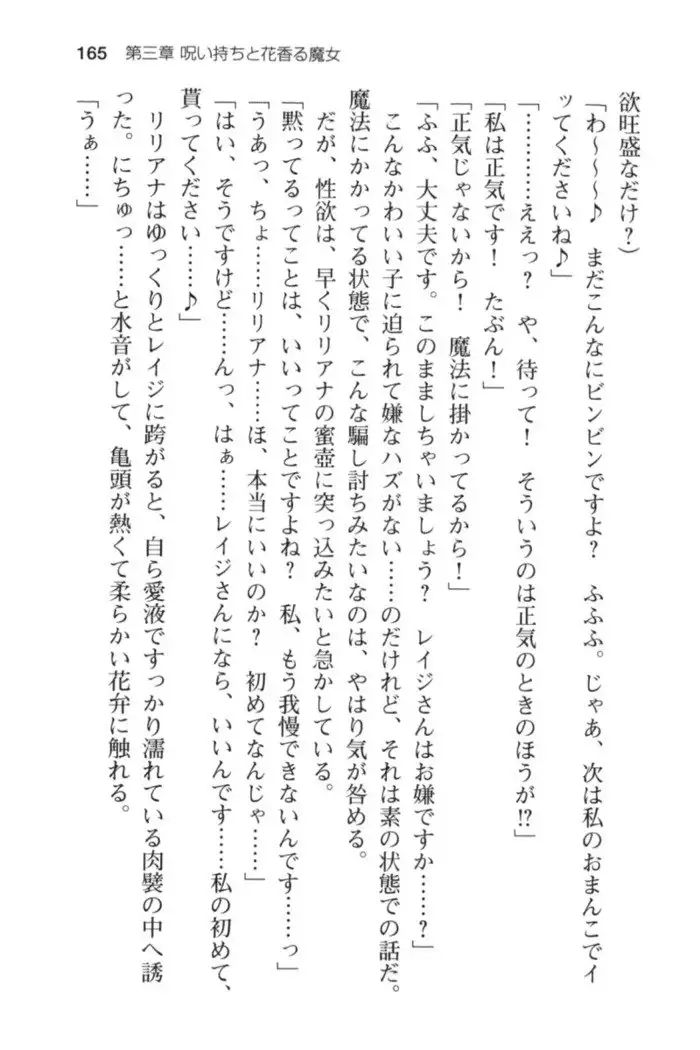 165 第三章 呪い持ちと花香る魔女
欲旺盛なだけ？）
「わ～～～♪　まだこんなにビンビンですよ？　ふふふ。じゃあ、次は私のおまんこでイ
ッてくださいね♪」
「…………ええっ？　や、待って！　そういうのは正気のときのほうが!?」
「私は正気です！　たぶん！」
「正気じゃないから！　魔法に掛かってるから！」
「ふふ、大丈夫です。このまましちゃいましょう？　レイジさんはお嫌ですか……？」
こんなかわいい子に迫られて嫌なハズがない……のだけれど、それは素の状態での話だ。
魔法にかかってる状態で、こんな騙し討ちみたいなのは、やはり気が咎める。
だが、性欲は、早くリリアナの蜜壺に突っ込みたいと急かしている。
「黙ってるってことは、いいってことですよね？　私、もう我慢できないんです……っ」
「うあっ、ちょ……リリアナ……ほ、本当にいいのか？　初めてなんじゃ……」
「はい、そうですけど……んっ、はぁ……レイジさんになら、いいんです……私の初めて、
貰ってください……♪」
リリアナはゆっくりとレイジに跨がると、自ら愛液ですっかり濡れている肉襞の中へ誘
った。にちゅっ……と水音がして、亀頭が熱くて柔らかい花弁に触れる。
「うぁ……」